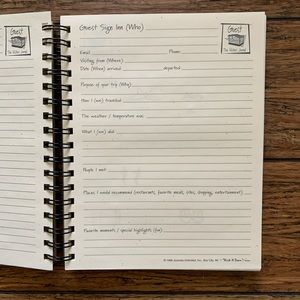 Guest
Guest Sign Inn (Who)
Guest
Email Phone
Visiting from (Where)
Date (When) arrived departed
Purpose of your trip (Why)
How I (we) travelled
The weather / temperature was
What I (we) did
People I met
Places I would recommend (restaurants, favorite meals, sites, shopping, entertainment)
Favorite moments / special highlights (fun)